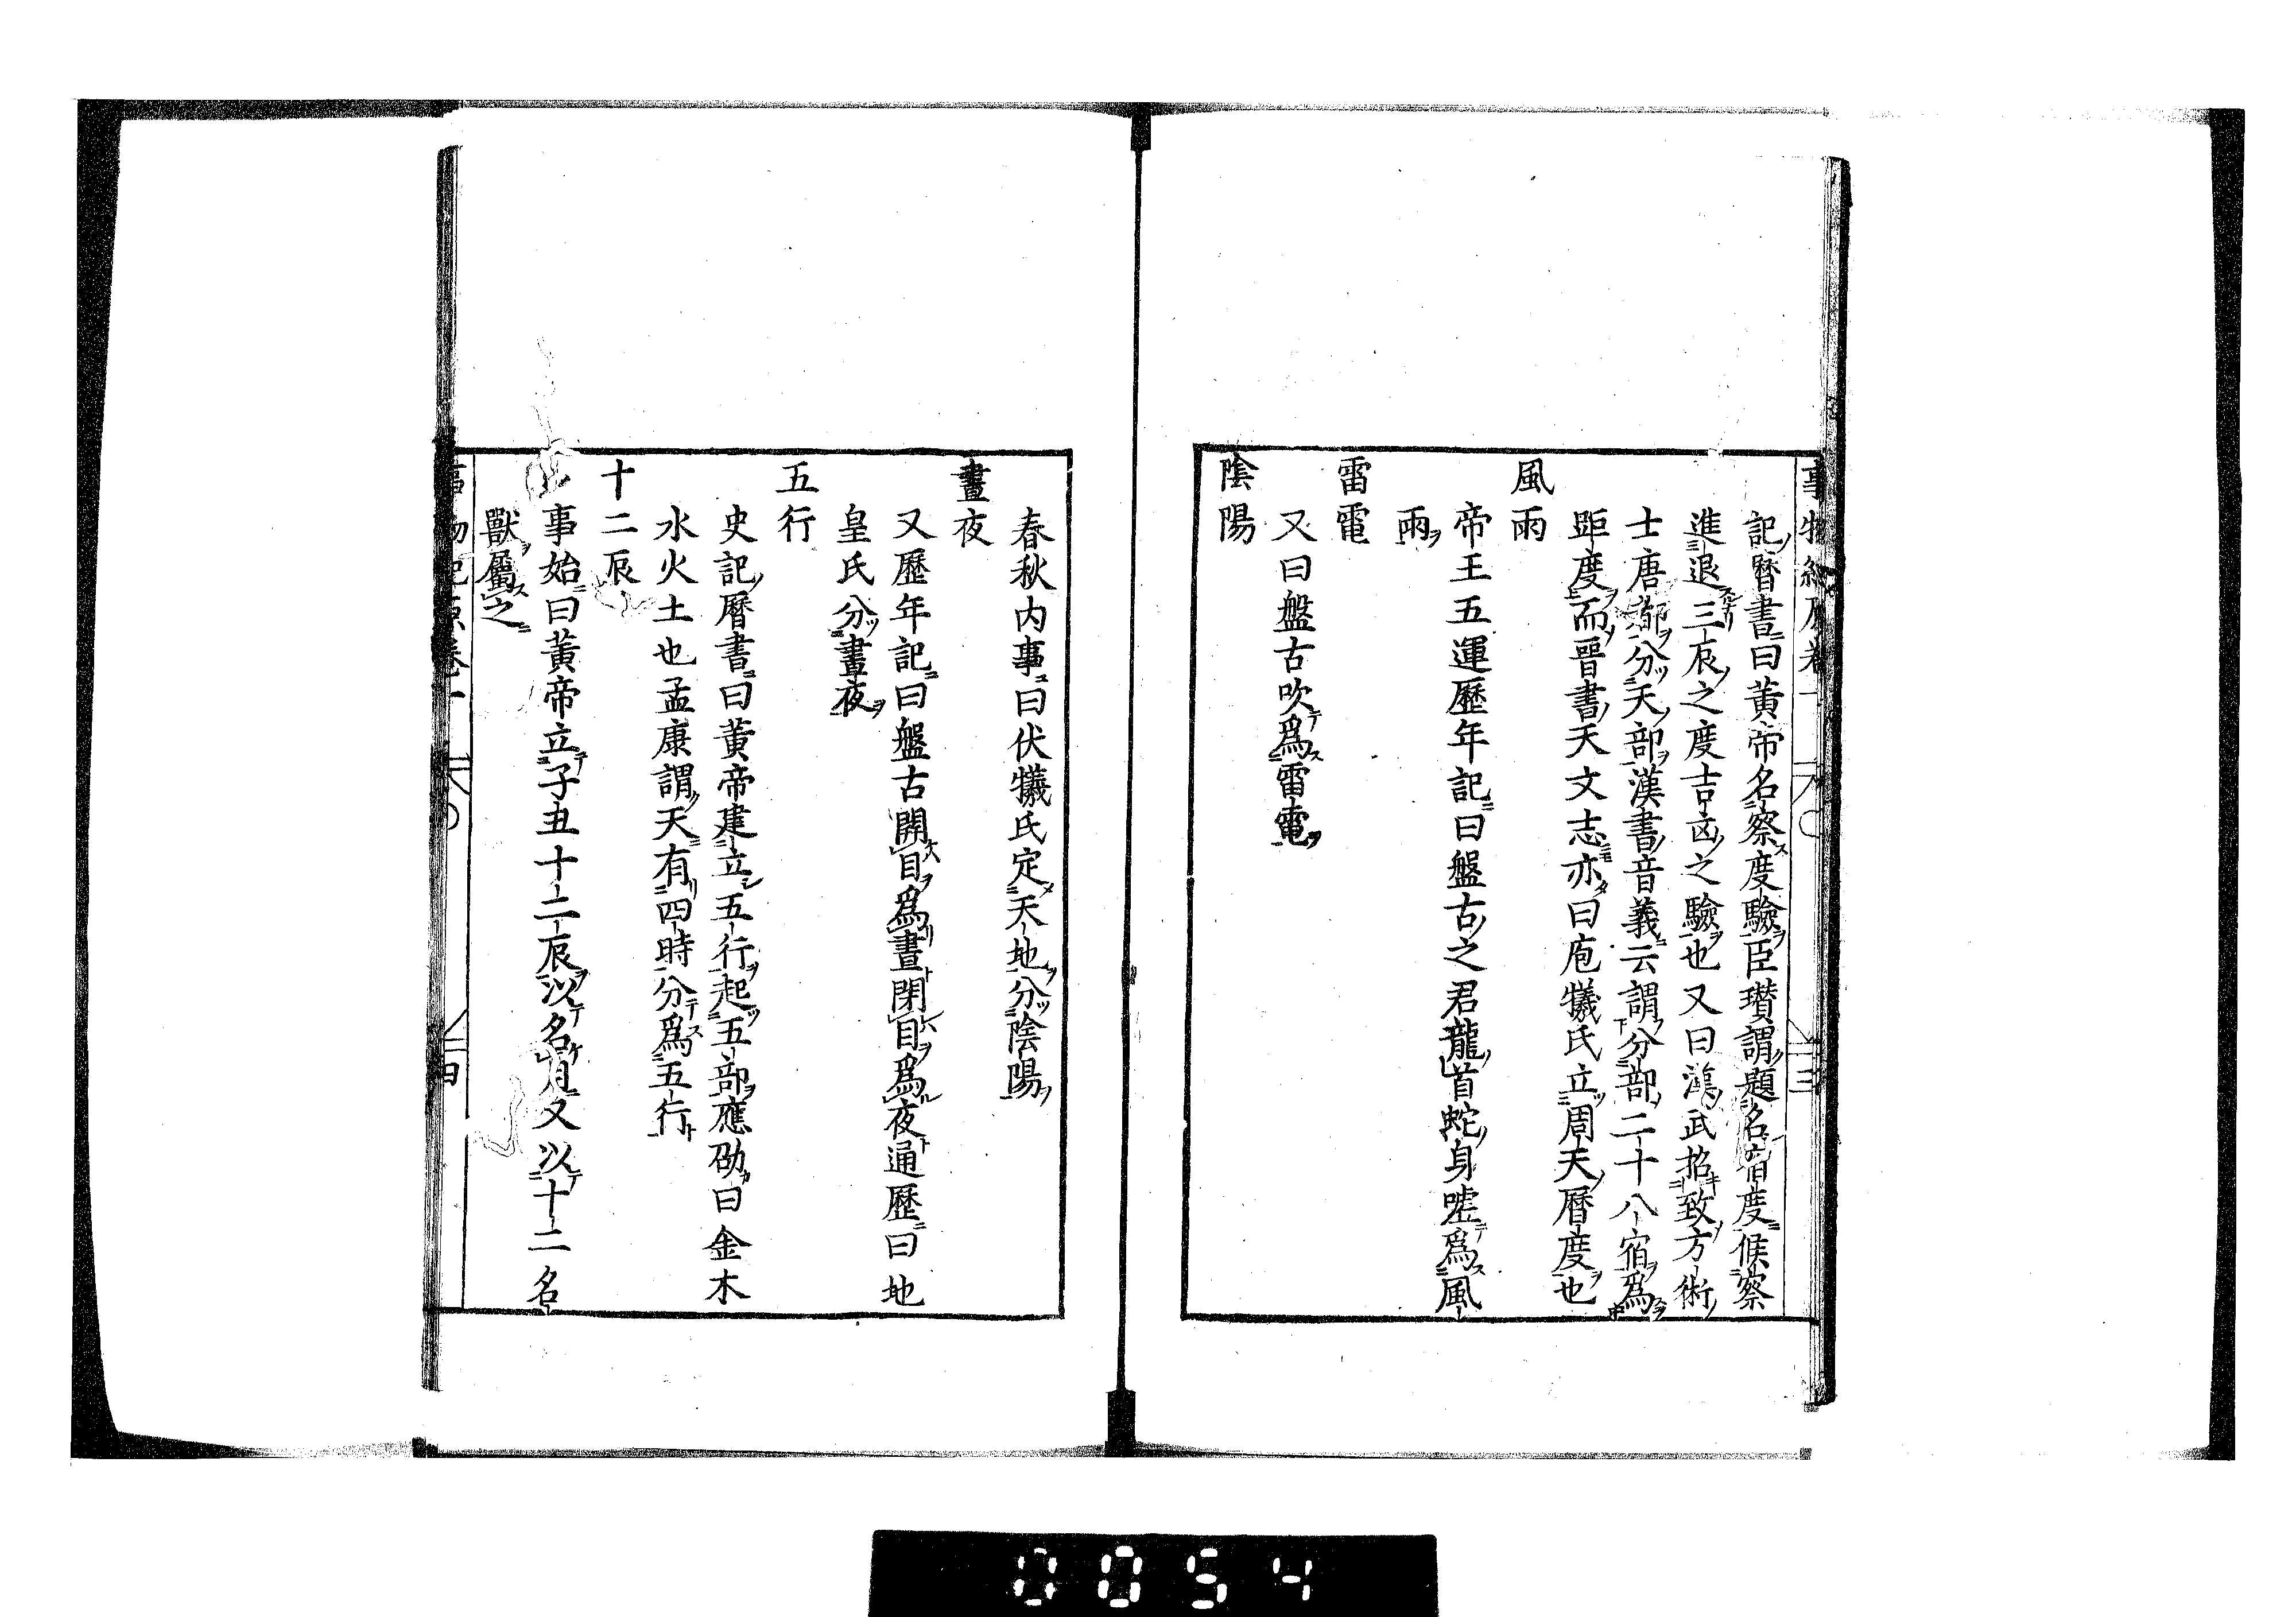 記曆書曰黃帝名察度驗臣瓚謂題名宿度候察
進退三辰之度吉凶之驗也又曰漢武招致方術
士唐都分天部漢書音義云謂分部二十八宿爲
距度而晉書天文志亦曰庖犧氏立周天曆度也
風雨
帝王五運歷年記曰盤古之君龍首蛇身噓爲風
雨
雷電
又曰盤古吹爲雷電
陰陽
春秋内事曰伏犧氏定天地分陰陽
晝夜
又歷年記曰盤古開目爲晝閉目爲夜通歷曰地
皇氏分晝夜
五行
史記曆書曰黃帝建立五行起五部應劭曰金木
水火土也孟康謂天有四時分爲五行
十二辰
事始曰黃帝立子丑十二辰以名月又以十二名
獸屬之
0054